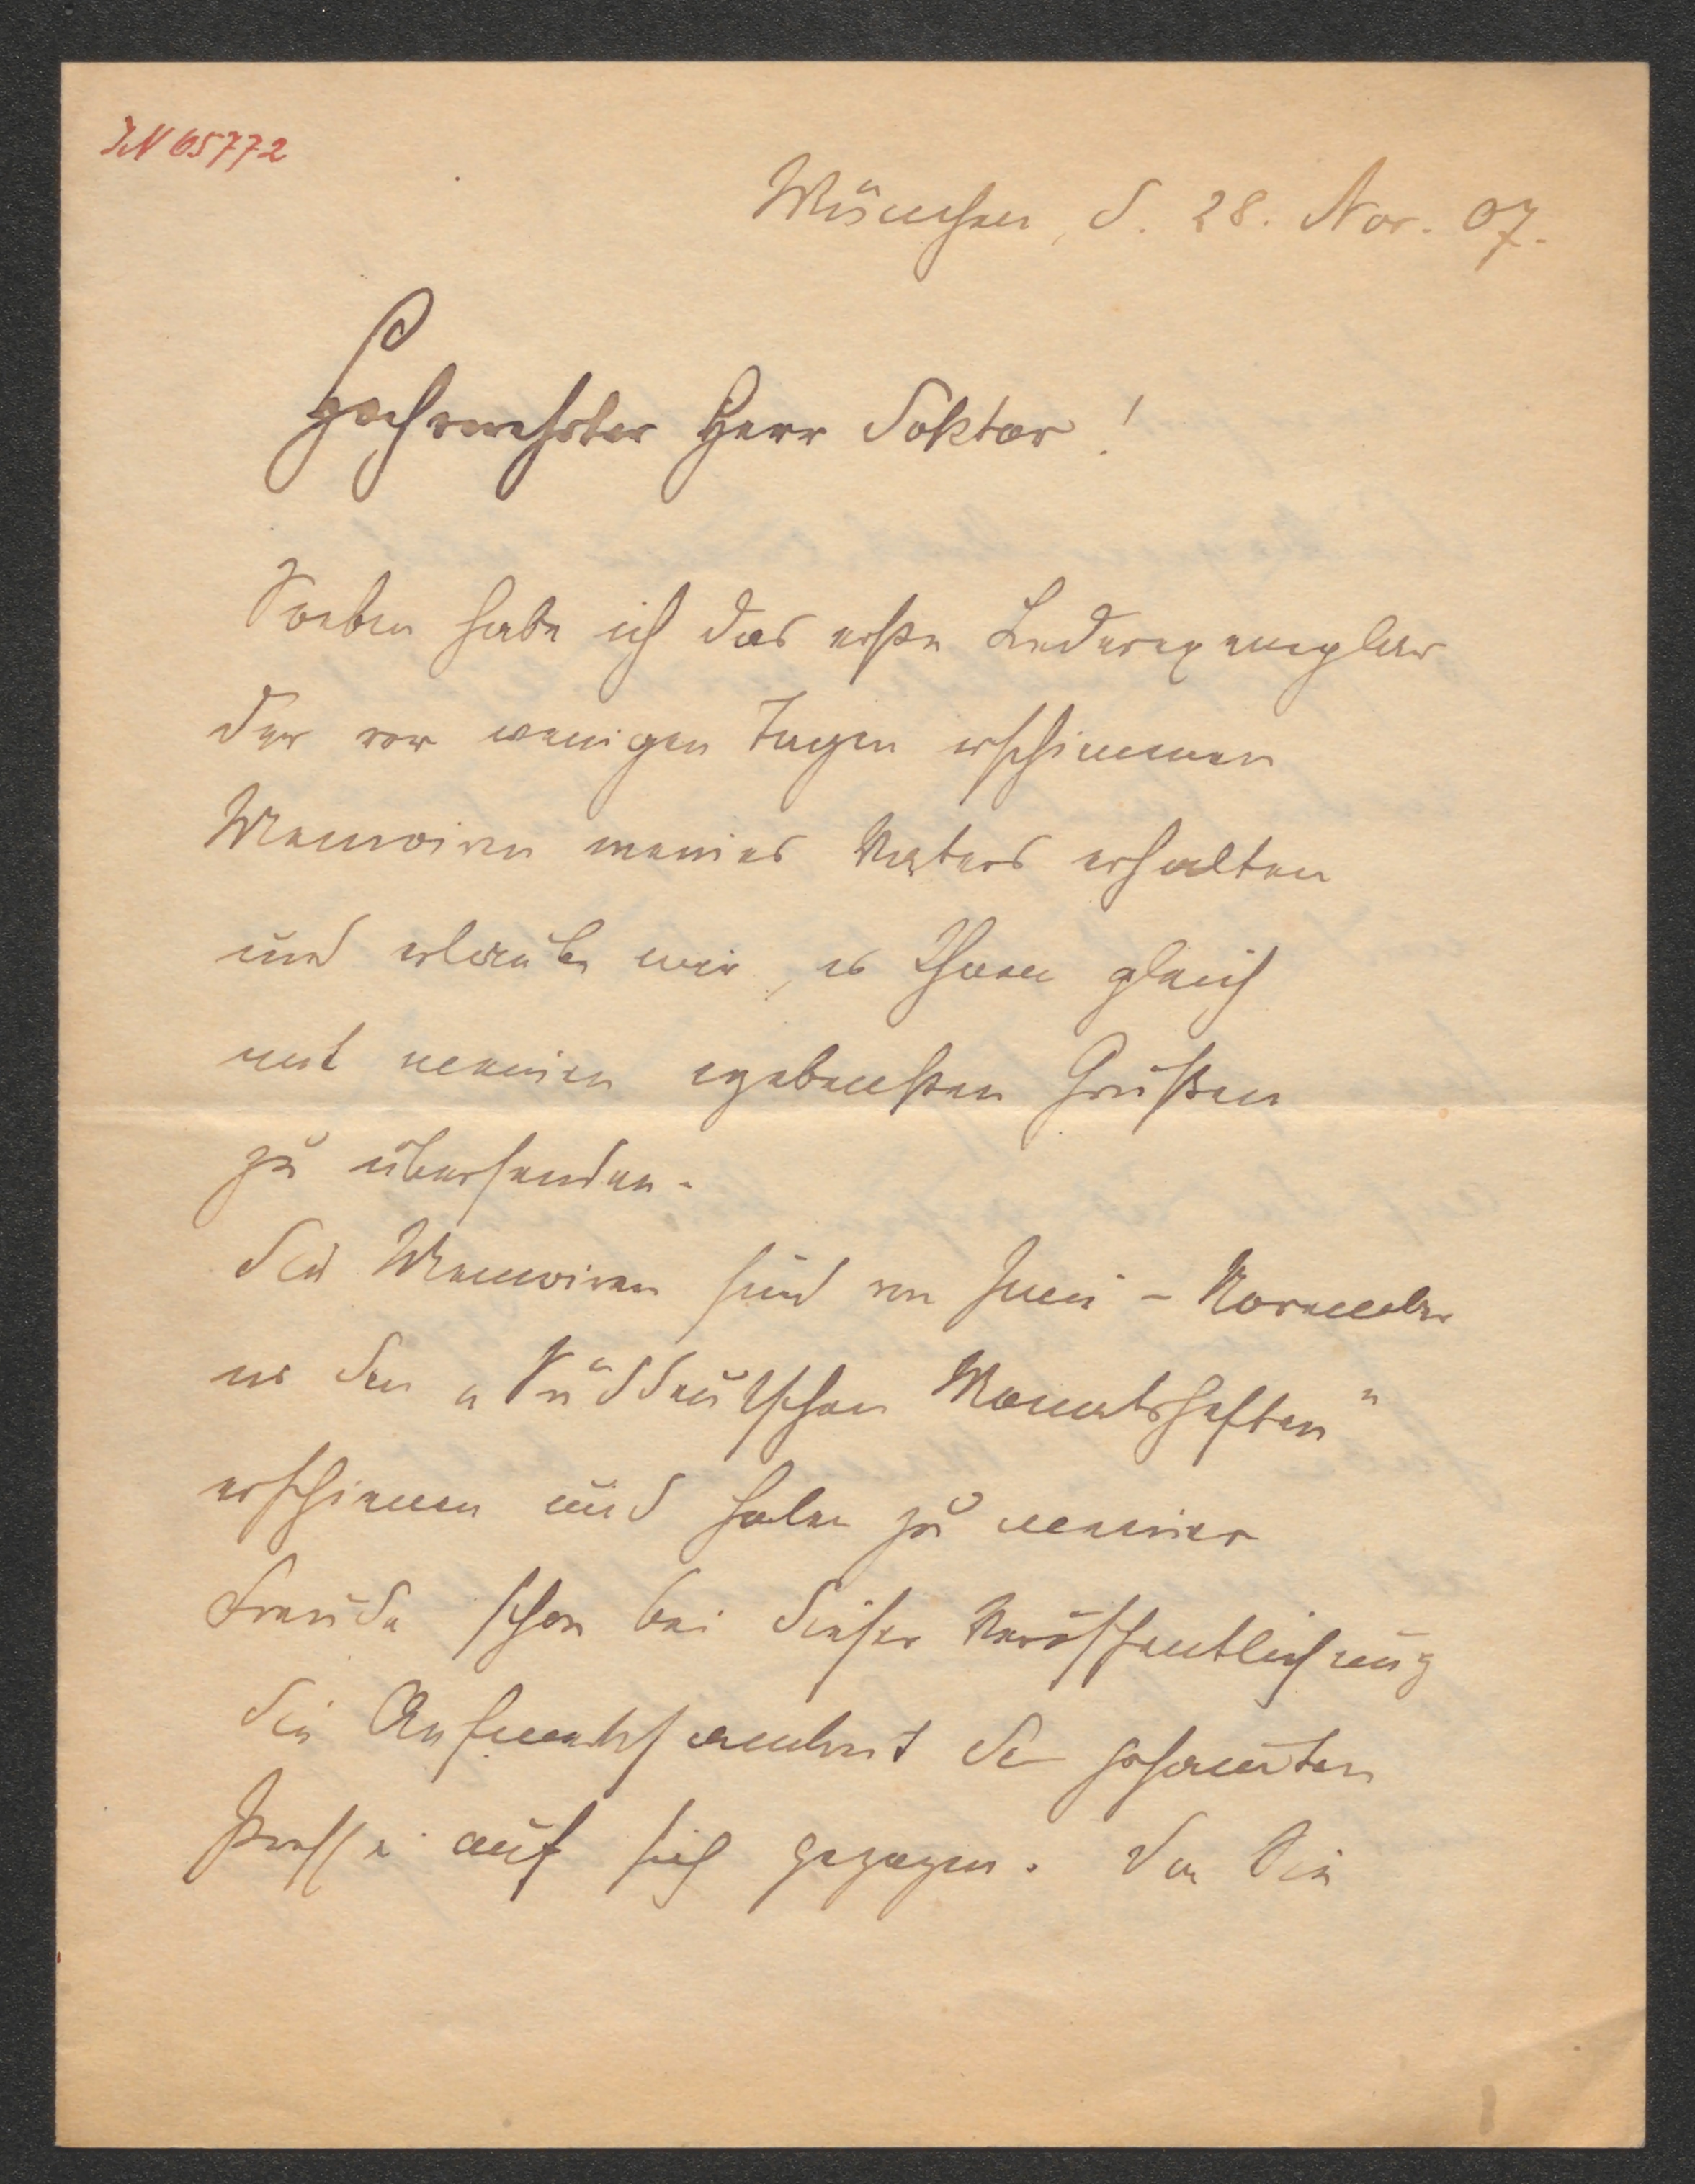 IN 65772
München, d. 28. Nov. 07.
Hochverehrter Herr Doktor!
Soeben habe ich das erste Lederexemplar
der vor wenigen Tagen erschienenen
Memoiren meines Vaters erhalten
und erlaube mir, es Ihnen gleich
mit meinen ergebensten Grüßen
zu übersenden.
Die Memoiren sind von Juni - November
in den „Süddeutschen Monatsheften"
erschienen und haben zu meiner
Freude schon bei dieser Veröffentlichung
die Aufmerksamkeit der gesamten
Presse auf sich gezogen. Da Sie